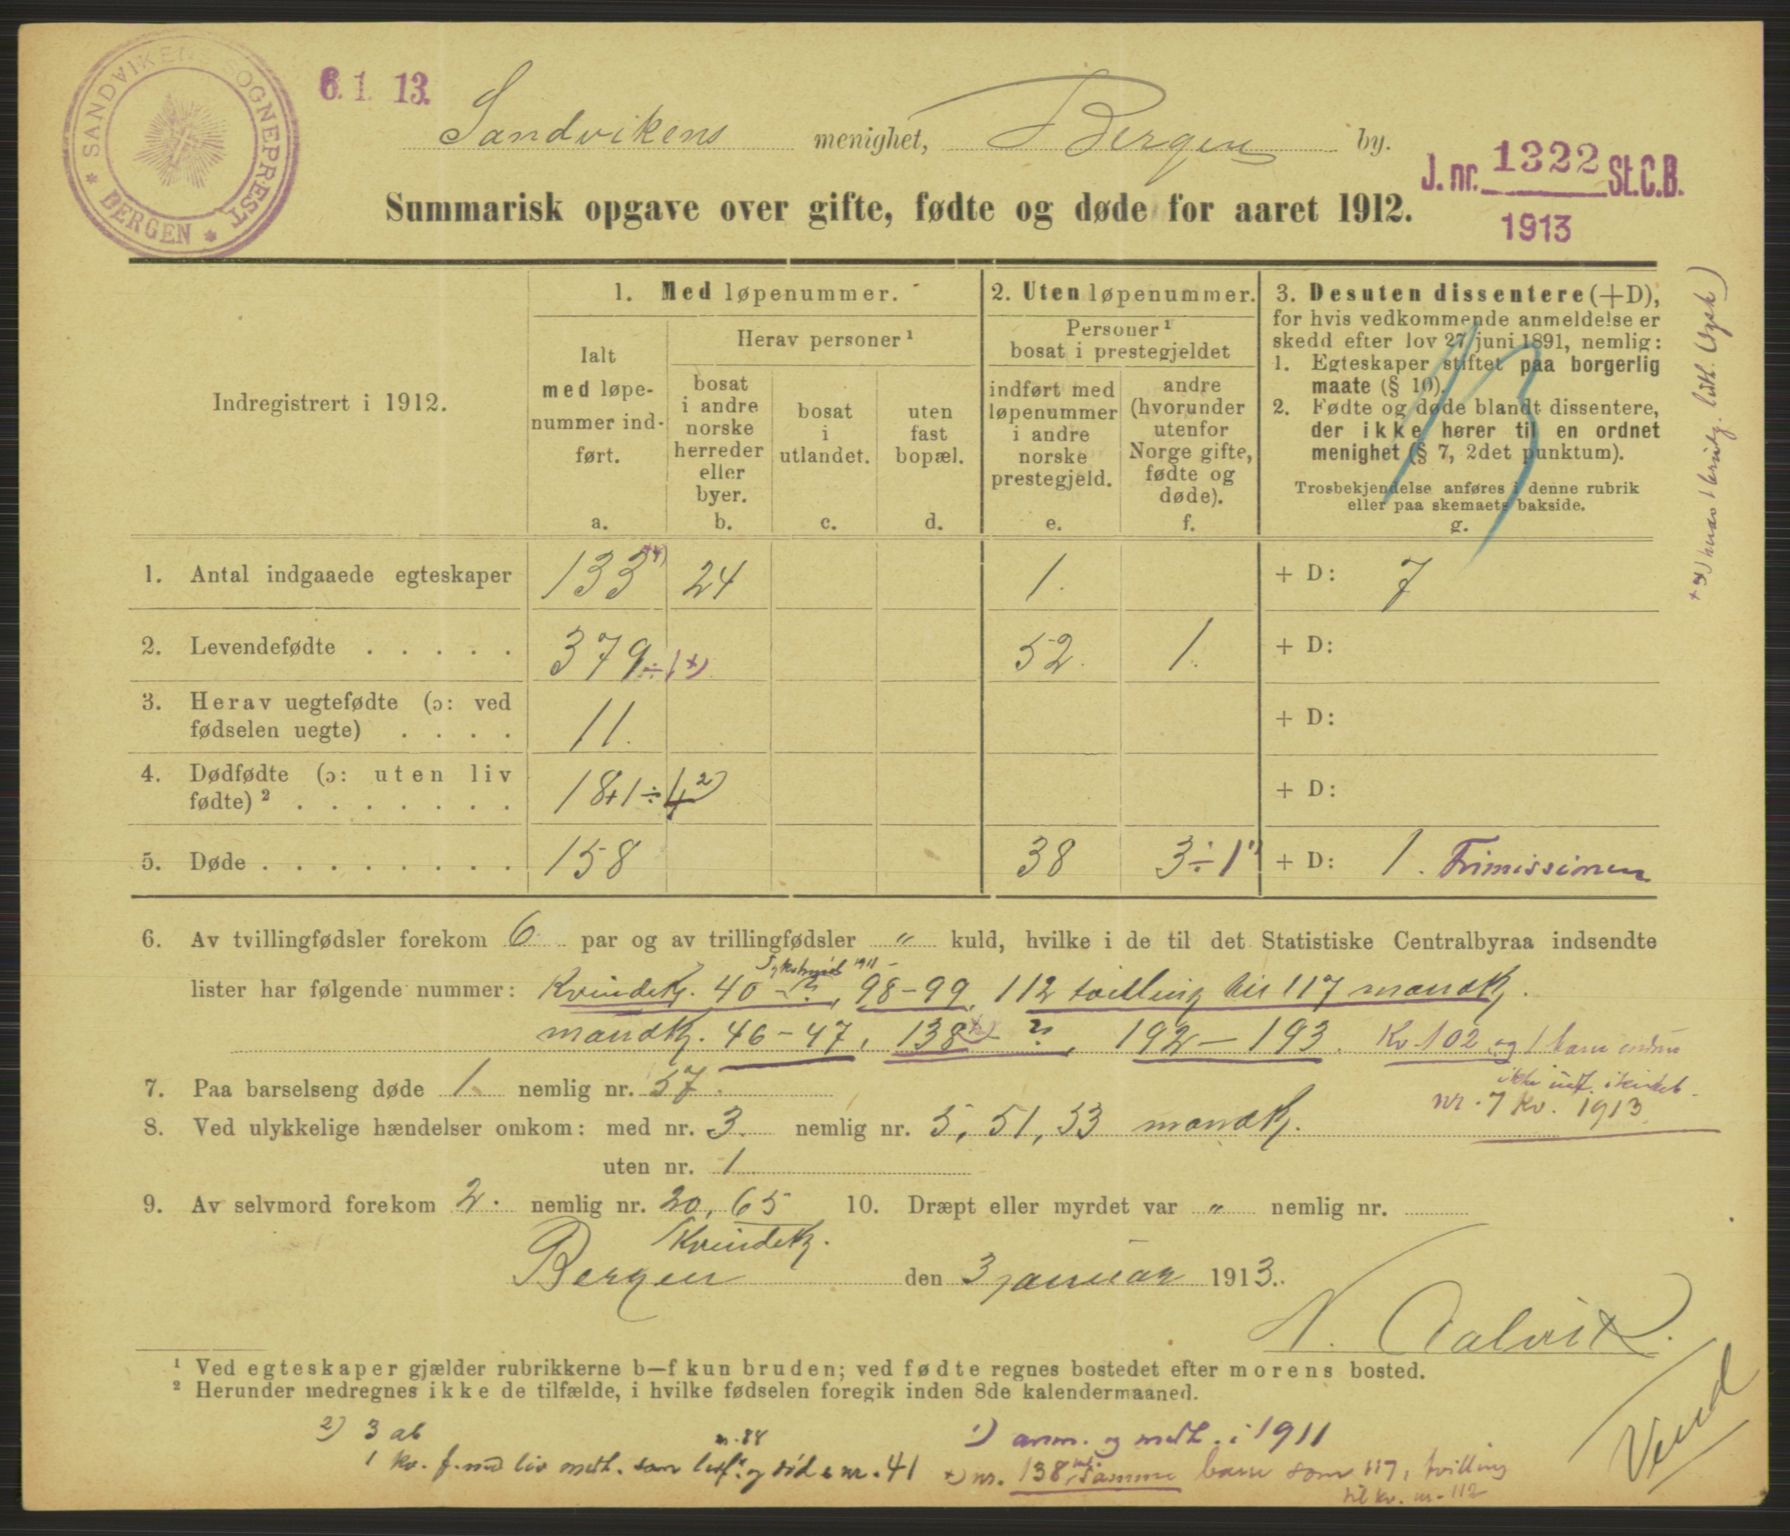 SANDVIKENS SOGNEPREST * BERGEN *
6. 1. 13.
Sandvikens menighet, Bergen by.
J. nr. 1322 St.C.B.
1913
Summarisk opgave over gifte, fødte og døde for aaret 1912.
Indregistrert i 1912.
1. Med løpenummer.
Ialt med løpe-nummer ind-ført.
a.
Herav personer ¹
bosat i andre norske herreder eller byer.
b.
bosat i utlandet.
c.
uten fast bopæl.
d.
2. Uten løpenummer.
Personer ¹ bosat i prestegjeldet
indført med løpenummer i andre norske prestegjeld.
e.
andre (hvorunder utenfor Norge gifte, fødte og døde).
f.
3. Desuten dissentere (+D),
for hvis vedkommende anmeldelse er
skedd efter lov 27 juni 1891, nemlig:
1. Egteskaper stiftet paa borgerlig
maate (§ 10).
2. Fødte og døde blandt dissentere,
der ikke hører til en ordnet
menighet (§ 7, 2det punktum).
Trosbekjendelse anføres i denne rubrik
eller paa skemaets bakside.
g.
13
1. Antal indgaaede egteskaper 133 24 1. + D: 7
2. Levendefødte . . . . . 379 ÷ 1 x) 52. 1. + D:
3. Herav uegtefødte (ɔ: ved
fødselen uegte) . . . . 11. + D:
4. Dødfødte (ɔ: uten liv
fødte) ² . . . . . . . 18+1÷4 2) + D:
5. Døde . . . . . . . . 158 38 3÷1 1) + D: 1. Frimissionen
6. Av tvillingfødsler forekom 6 par og av trillingfødsler „ kuld, hvilke i de til det Statistiske Centralbyraa indsendte
1911
lister har følgende nummer: Kvindekj. 40 - ?, 98-99, 112 tvilling til 117 mandkj.
mandkj. 46-47, 138 x) - ?, 192-193. Kv. 102 og 1 barn endnu
ikke indf. i
nr. 7 Kv. 1913
7. Paa barselseng døde 1. nemlig nr. 57.
8. Ved ulykkelige hændelser omkom: med nr. 3. nemlig nr. 5, 51, 53 mandkj.
uten nr. 1
9. Av selvmord forekom 2. nemlig nr. 20, 65 10. Dræpt eller myrdet var „ nemlig nr.
Kvindekj.
Bergen den 3 januar 1913.
N. Aalvik.
¹ Ved egteskaper gjælder rubrikkerne b—f kun bruden; ved fødte regnes bostedet efter morens bosted.
² Herunder medregnes ikke de tilfælde, i hvilke fødselen foregik inden 8de kalendermaaned.
2) 3 ab
nr. 88
1 kv. f. med liv medt. som og død nr. 41
1) anm. og medt. i 1911
x) nr. 138 samme barn som 117, tvilling
til kv. nr. 112